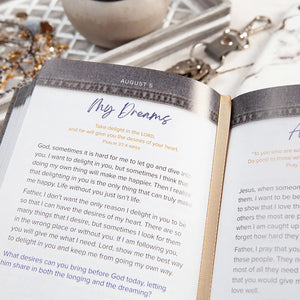 AUGUST 5
My Dreams
Take delight in the LORD,
and he will give you the desires of your heart.
Psalm 37:4
God, sometimes it is hard for me to let go and dive into
you. I want to delight in you, but sometimes I think that
doing my own thing will make me happier. Then I realize
that delighting in you is the only thing that can truly make
me happy. Life without you just isn't life.
Father, I don't want the only reason I delight in you to be
so that I can have the desires of my heart. There are so
many things that I desire, but sometimes I look for them
in the wrong place or without you. If I am following you,
you will give me what I need. Lord, show me the best way
to delight in you and keep me from going my own way.
What desires can you bring before God today, letting
him share in both the longing and the dreaming?
"To you who are
Do good to those w
Pray
Jesus, when someone
them. I want to be
to show that I love th
others the most are p
when I am caught up
forget how hard they
Father, I pray that you
these people. They n
most of all they need
that you would